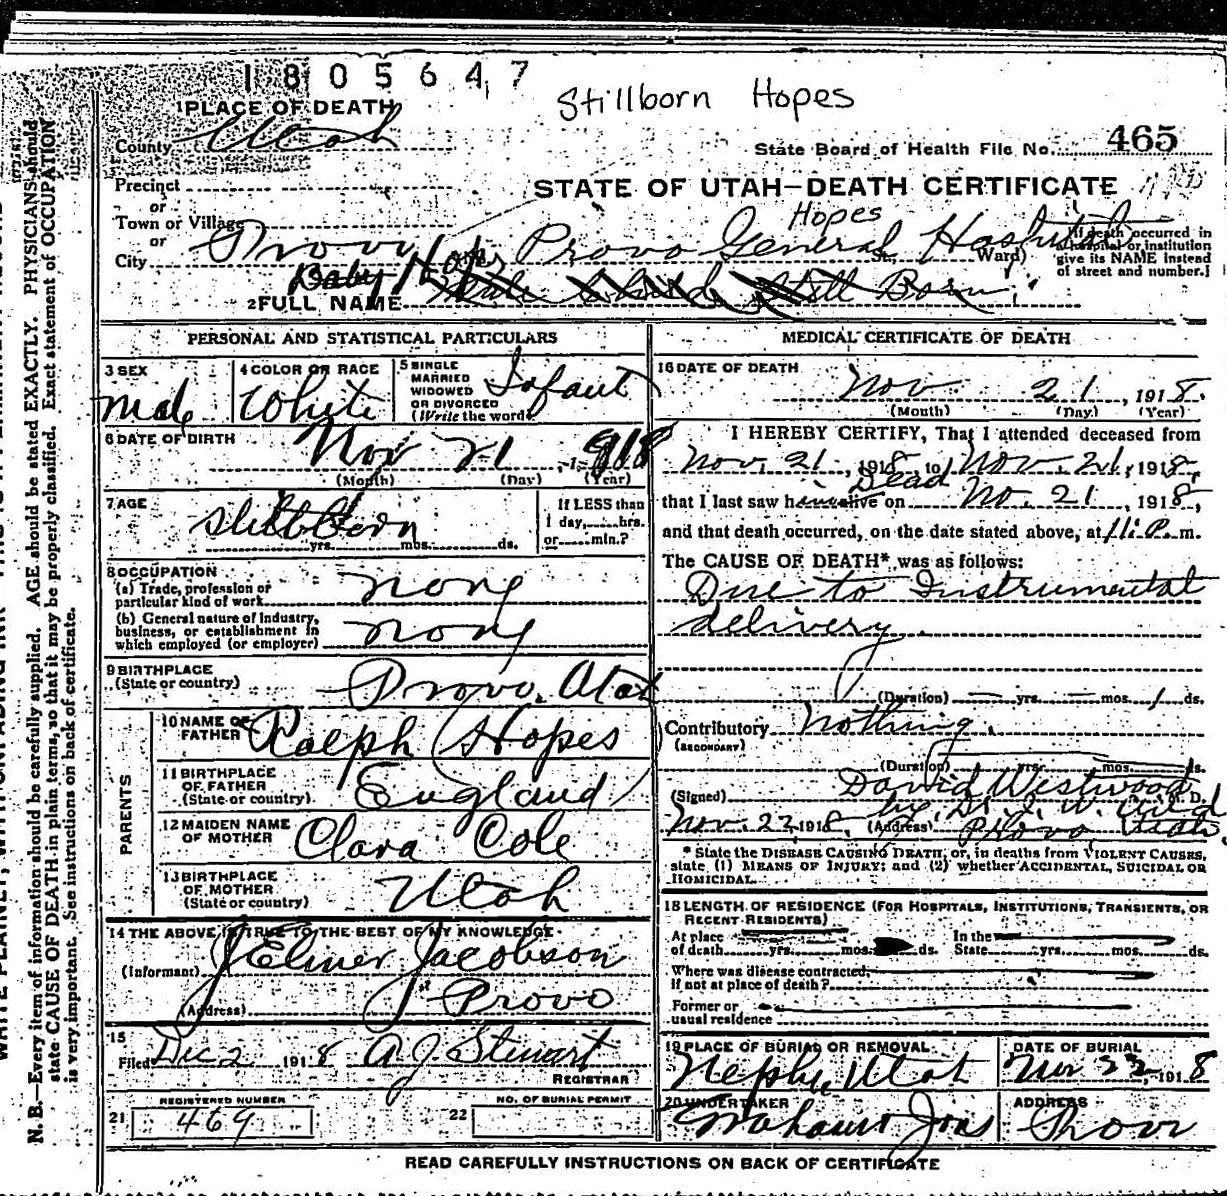 1805647
Stillborn Hopes
1 PLACE OF DEATH
County Utah
State Board of Health File No. 465
Precinct
STATE OF UTAH—DEATH CERTIFICATE
or
Town or Village
Hopes
or
City Provo Provo General Hospital St. Ward)
[If death occurred in a hospital or institution give its NAME instead of street and number.]
Baby Hopes
2 FULL NAME Male Child Still Born
PERSONAL AND STATISTICAL PARTICULARS
3 SEX
Male
4 COLOR OR RACE
White
5 SINGLE
MARRIED
WIDOWED
OR DIVORCED
(Write the word)
Infant
6 DATE OF BIRTH
Nov 21 1918
(Month) (Day) (Year)
7 AGE
Stillborn
yrs. mos. ds.
If LESS than
1 day, hrs.
or min.?
8 OCCUPATION
(a) Trade, profession or
particular kind of work none
(b) General nature of industry,
business, or establishment in
which employed (or employer) none
9 BIRTHPLACE
(State or country) Provo, Utah
PARENTS
10 NAME OF
FATHER Ralph Hopes
11 BIRTHPLACE
OF FATHER
(State or country) England
12 MAIDEN NAME
OF MOTHER Clara Cole
13 BIRTHPLACE
OF MOTHER
(State or country) Utah
14 THE ABOVE IS TRUE TO THE BEST OF MY KNOWLEDGE
(Informant) J Elmer Jacobson
(Address) Provo
15
Filed Dec 2 1918 A J. Stewart
REGISTRAR
REGISTERED NUMBER
21 469
NO. OF BURIAL PERMIT
22
MEDICAL CERTIFICATE OF DEATH
16 DATE OF DEATH
Nov 21, 1918.
(Month) (Day) (Year)
I HEREBY CERTIFY, That I attended deceased from
Nov. 21, 1918, to Nov. 21, 1918,
Dead
that I last saw him alive on No. 21, 1918,
and that death occurred, on the date stated above, at 11. P. m.
The CAUSE OF DEATH* was as follows:
Due to Instrumental
delivery
(Duration) yrs. mos. 1 ds.
Contributory Nothing.
(SECONDARY)
(Duration) yrs. mos. ds.
(Signed) David Westwood M. D.
Nov. 22 1918. (Address) Provo Utah
* State the DISEASE CAUSING DEATH, or, in deaths from VIOLENT CAUSES,
state (1) MEANS OF INJURY; and (2) whether ACCIDENTAL, SUICIDAL OR
HOMICIDAL.
18 LENGTH OF RESIDENCE (FOR HOSPITALS, INSTITUTIONS, TRANSIENTS, OR
RECENT RESIDENTS)
At place
of death yrs. mos. ds.
In the
State yrs. mos. ds.
Where was disease contracted,
if not at place of death?
Former or
usual residence
19 PLACE OF BURIAL OR REMOVAL
Nephi, Utah
DATE OF BURIAL
Nov 22, 1918
20 UNDERTAKER
ADDRESS
Provo
READ CAREFULLY INSTRUCTIONS ON BACK OF CERTIFICATE
N. B.—Every item of information should be carefully supplied. AGE should be stated EXACTLY. PHYSICIANS should
state CAUSE OF DEATH in plain terms, so that it may be properly classified. Exact statement of OCCUPATION
is very important. See instructions on back of certificate.